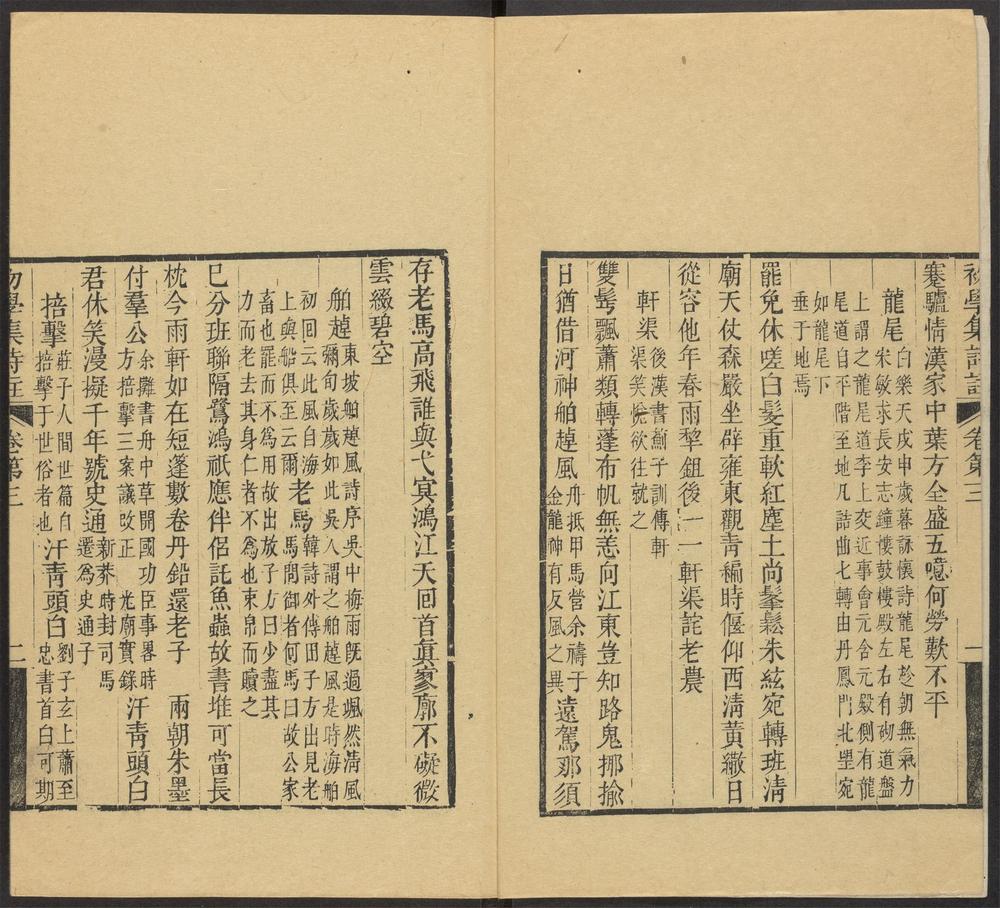 初學集詩註 卷第三 一
蹇驢情漢家中葉方全盛五噫何勞歎不平
龍尾 白樂天戊申歲暮詠懷詩龍尾趁朝無氣力
宋敏求長安志鐘樓鼓樓殿左右有砌道盤
上謂之龍尾道李上交近事會元含元殿側有龍
尾道自平階至地凡詰曲七轉由丹鳳門北望宛
如龍尾下
垂于地焉
罷免休嗟白髮重軟紅塵土尚鬅鬆朱絃宛轉班淸
廟天仗森嚴坐辟雍東觀靑編時偃仰西淸黃繖日
從容他年春雨犂鉏後一一軒渠詫老農
軒渠 後漢書薊子訓傳軒
渠笑悅欲往就之
雙髩飄蕭類轉蓬布帆無恙向江東豈知路鬼揶揄
日猶借河神舶趠風 舟抵甲馬營余禱于
金龍神有反風之異 遠駕那須
存老馬高飛誰與弋㝠鴻江天回首眞寥廓不礙微
雲綴碧空
舶趠 東坡舶趠風詩序吳中梅雨旣過颯然淸風
彌旬歲歲如此吳人謂之舶趠風是時海舶
初回云此風自海
上與舶俱至云爾 老馬 韓詩外傳田子方出見老
馬問御者何馬曰故公家
畜也罷而不爲用故出放子方曰少盡其
力而老去其身仁者不爲也束帛而贖之
已分班聯隔鷺鴻祇應伴侶託魚蟲故書堆可當長
枕今雨軒如在短篷數卷丹鉛還老子 兩朝朱墨
付羣公 余攤書舟中草開國功臣事畧時
方掊擊三案議改正 光廟實錄 汗靑頭白
君休笑漫擬千年號史通 新莽時封司馬
遷爲史通子
掊擊 莊子人間世篇自
掊擊于世俗者也 汗靑頭白 劉子玄上蕭至
忠書首白可期
初學集詩註 卷第三 二